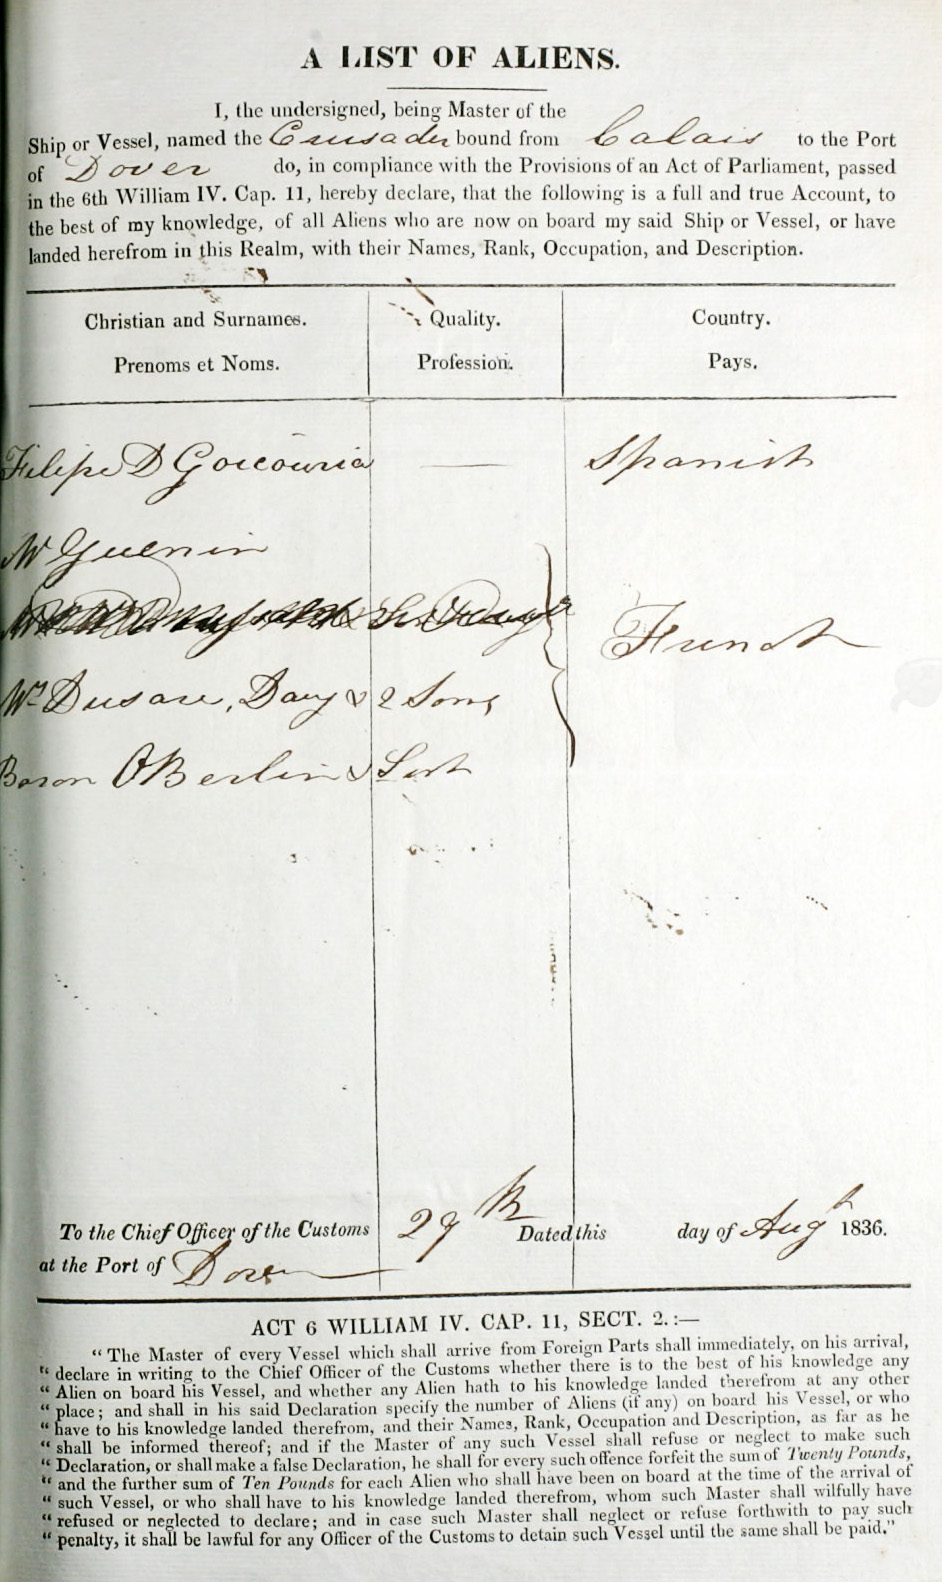 A LIST OF ALIENS.
I, the undersigned, being Master of the
Ship or Vessel, named the Crusader bound from Calais to the Port
of Dover do, in compliance with the Provisions of an Act of Parliament, passed
in the 6th William IV. Cap. 11, hereby declare, that the following is a full and true Account, to
the best of my knowledge, of all Aliens who are now on board my said Ship or Vessel, or have
landed herefrom in this Realm, with their Names, Rank, Occupation, and Description.
Christian and Surnames. Quality. Country.
Prenoms et Noms. Profession. Pays.
Filipe D Goicouria — Spanish
Mr Guenin
French
Dusare, Dau & 2 Sons
Baron OBerlin & Sert
To the Chief Officer of the Customs 29th Dated this day of Augt 1836.
at the Port of Dover
ACT 6 WILLIAM IV. CAP. 11, SECT. 2.:—
"The Master of every Vessel which shall arrive from Foreign Parts shall immediately, on his arrival,
"declare in writing to the Chief Officer of the Customs whether there is to the best of his knowledge any
"Alien on board his Vessel, and whether any Alien hath to his knowledge landed therefrom at any other
"place; and shall in his said Declaration specify the number of Aliens (if any) on board his Vessel, or who
"have to his knowledge landed therefrom, and their Names, Rank, Occupation and Description, as far as he
"shall be informed thereof; and if the Master of any such Vessel shall refuse or neglect to make such
"Declaration, or shall make a false Declaration, he shall for every such offence forfeit the sum of Twenty Pounds,
"and the further sum of Ten Pounds for each Alien who shall have been on board at the time of the arrival of
"such Vessel, or who shall have to his knowledge landed therefrom, whom such Master shall wilfully have
"refused or neglected to declare; and in case such Master shall neglect or refuse forthwith to pay such
"penalty, it shall be lawful for any Officer of the Customs to detain such Vessel until the same shall be paid."